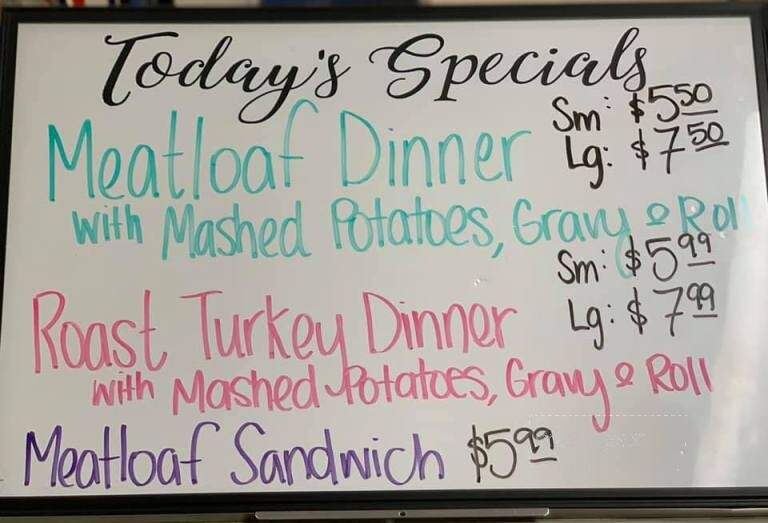 Today's Specials
Meatloaf Dinner Sm: $5.50
Lg: $7.50
with Mashed Potatoes, Gravy & Roll
Roast Turkey Dinner Sm: $5.99
Lg: $7.99
with Mashed Potatoes, Gravy & Roll
Meatloaf Sandwich $5.99